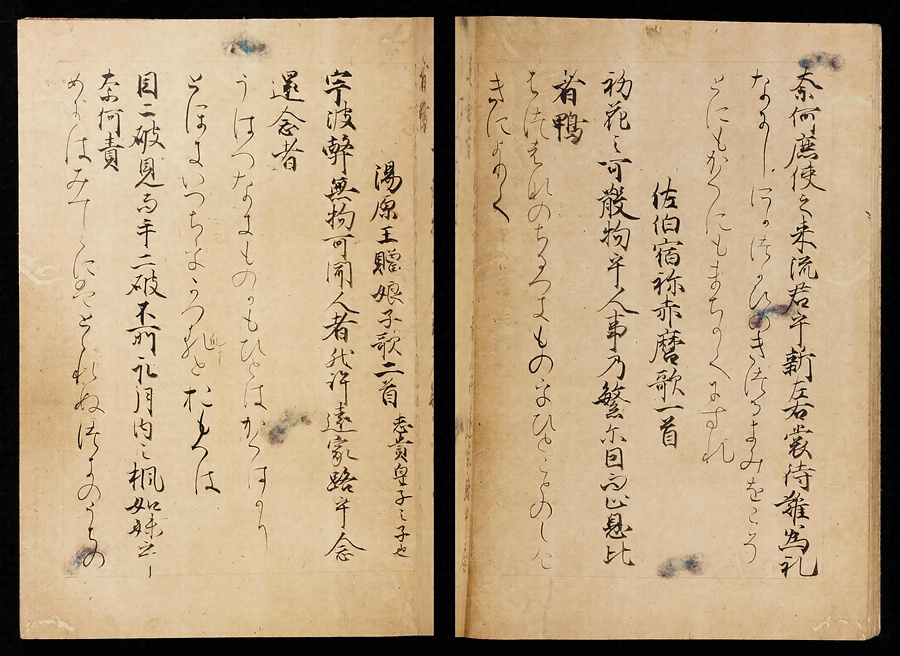 奈何鹿使之来流君乎新左右裳待難為礼
なにしかつかひのきつるきみをこそ
とにもかくにもまちかくにすれ
佐伯宿祢赤麿歌一首
初花之可散物乎人事乃繁尓因而止息比
者鴨
はつはなのちるへきものをひとことのしけ
きによりて
湯原王贈娘子歌二首 志貴皇子之子也
宇波弊無物可聞人者然許遠家路乎令
還念者
うはへなきものかもひとはかくはかり
とほきいへちをかへすとおもへは
目二破見而手二破不所取月内之楓如妹乎
奈何責
めにはみててにはとられぬつきのうちの